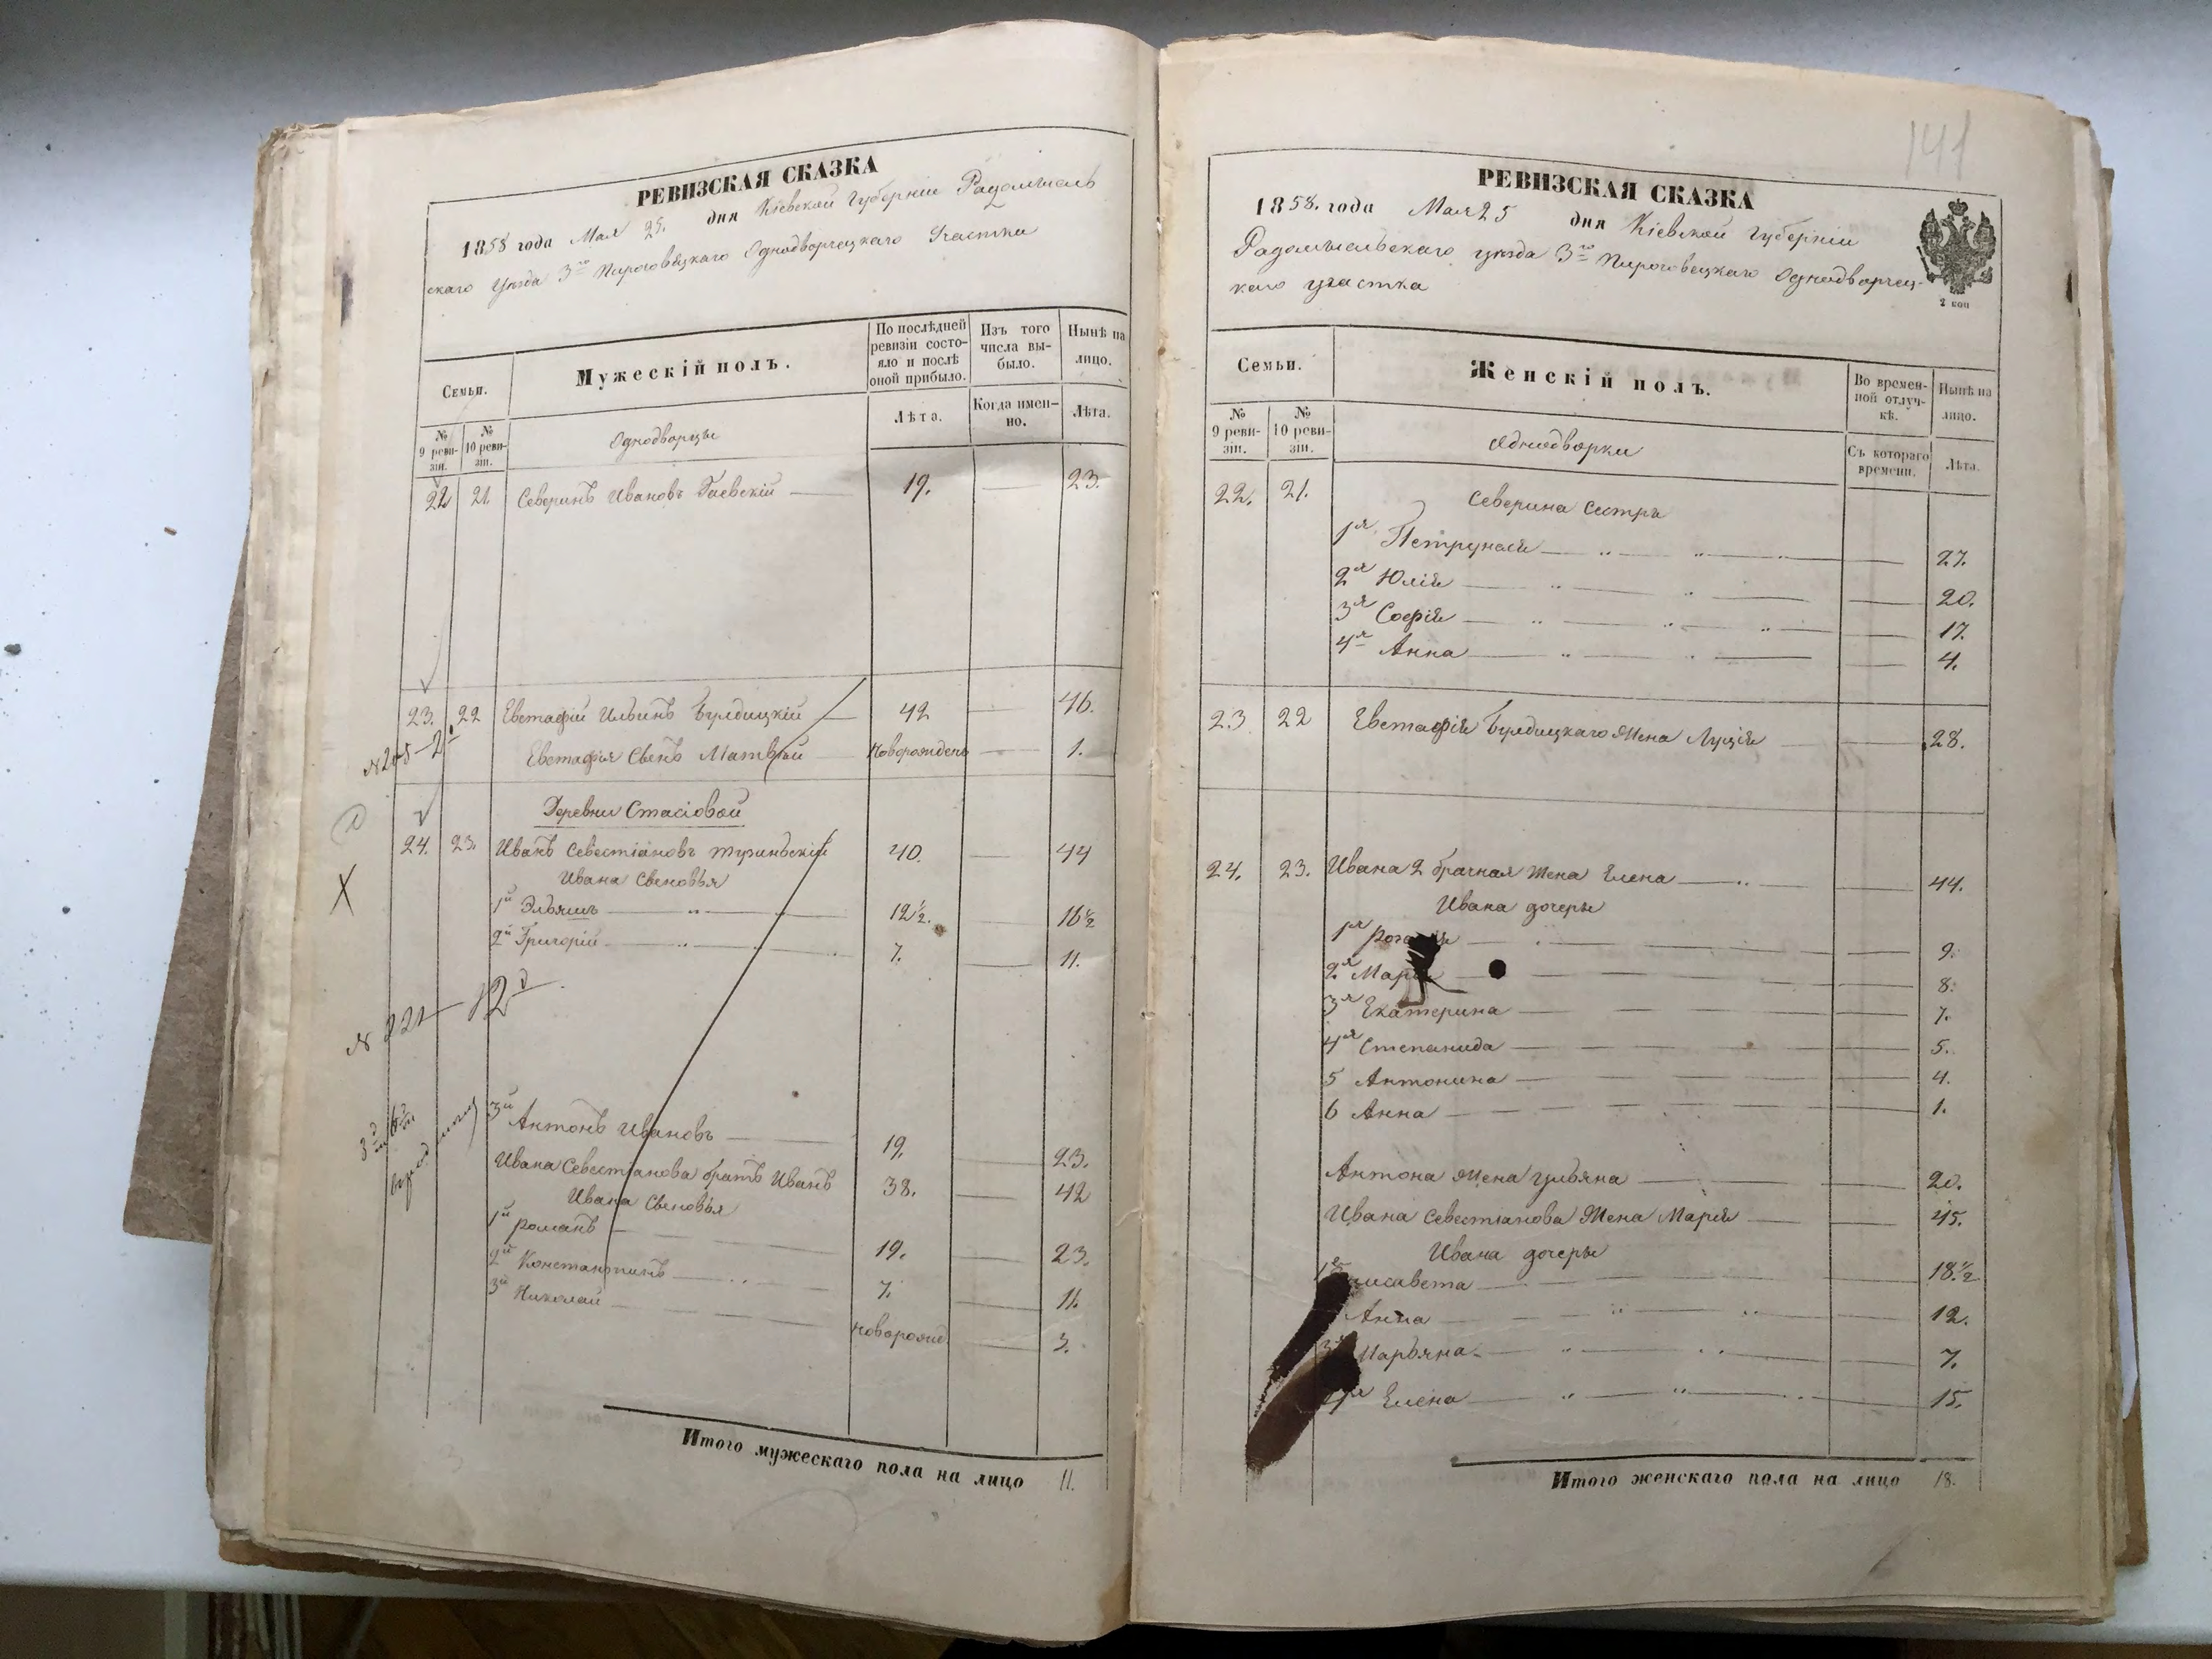 РЕВИЗСКАЯ СКАЗКА
1858 года Мая 25. дня Кіевской Губерніи Радомысль
скаго Уѣзда 3го Пироговѣцкаго Однодворческаго Участка
Семьи.
Мужескій полъ.
По послѣдней ревизіи состояло и послѣ оной прибыло.
Изъ того числа выбыло.
Нынѣ на лицо.
№ 9 ревизіи.
№ 10 ревизіи.
Однодворцы
Лѣта.
Когда именно.
Лѣта.
22 21. Северинъ Ивановъ Гаевскій 19. 23.
23. 22 Евстафій Ильинъ 42 46.
Евстафія Сынъ Матвѣй Новорожденъ 1.
Деревни Стасіовой
24. 23. Иванъ Севестіановъ 40. 44
Ивана Сыновья
1й Эльяшъ 12½. 16½
2й Григорій 7. 11.
N 221 — 12д
3й Антонъ Ивановъ 19. 23.
Ивана Севестіанова братъ Иванъ 38. 42
Ивана Сыновья
1й Романъ 19. 23.
2й Константинъ 7. 11.
3й Николай Новорожд 3.
Итого мужескаго пола на лицо 11.
141
РЕВИЗСКАЯ СКАЗКА
1858. года Мая 25 дня Кіевской Губерніи
Радомысльскаго уѣзда 3го Пироговецкаго Однодворчес-
каго участка
2 коп
Семьи.
Женскій полъ.
Во временной отлучкѣ.
Нынѣ на лицо.
№ 9 ревизіи.
№ 10 ревизіи.
Однодворки
Съ котораго времени.
Лѣта.
22. 21. Северина Сестры
1я Петрунеля 27.
2я Юлія 20.
3я Софія 17.
4я Анна 4.
23 22 Евстафія Жена Луція 28.
24. 23. Ивана 2 брачная жена Елена 44.
Ивана дочеры
1я 9.
2я Марія 8.
3я Екатерина 7.
4я Степанида 5.
5 Антонина 4.
6 Анна 1.
Антона жена Ульяна 20.
Ивана Севестіанова Жена Марія 45.
Ивана дочеры
лисавета 18½
Анна 12.
3я Марьяна 7.
Елена 15.
Итого женскаго пола на лицо 18.